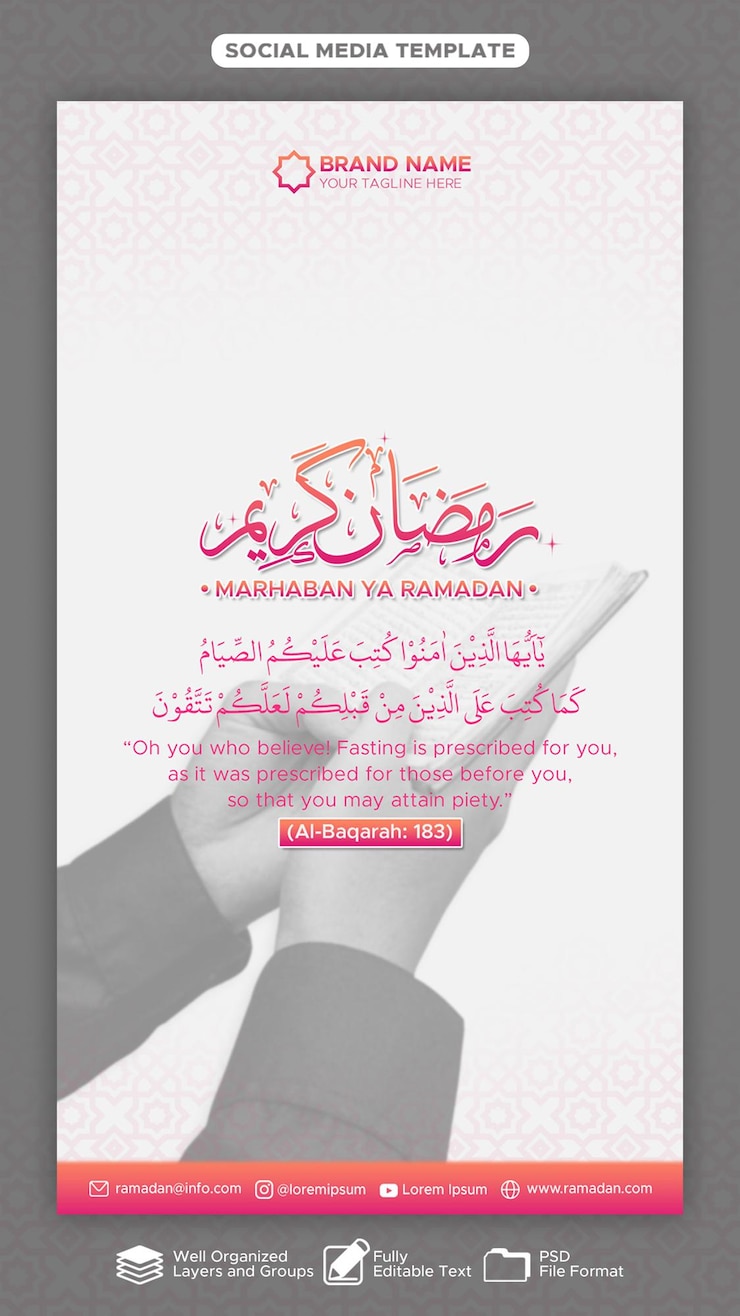 SOCIAL MEDIA TEMPLATE
BRAND NAME
YOUR TAGLINE HERE
رَمَضَان كَرِيم
• MARHABAN YA RAMADAN •
يٰٓاَيُّهَا الَّذِيْنَ اٰمَنُوْا كُتِبَ عَلَيْكُمُ الصِّيَامُ
كَمَا كُتِبَ عَلَى الَّذِيْنَ مِنْ قَبْلِكُمْ لَعَلَّكُمْ تَتَّقُوْنَ
“Oh you who believe! Fasting is prescribed for you,
as it was prescribed for those before you,
so that you may attain piety.”
(Al-Baqarah: 183)
ramadan@info.com @loremipsum Lorem Ipsum www.ramadan.com
Well Organized
Layers and Groups
Fully
Editable Text
PSD
File Format